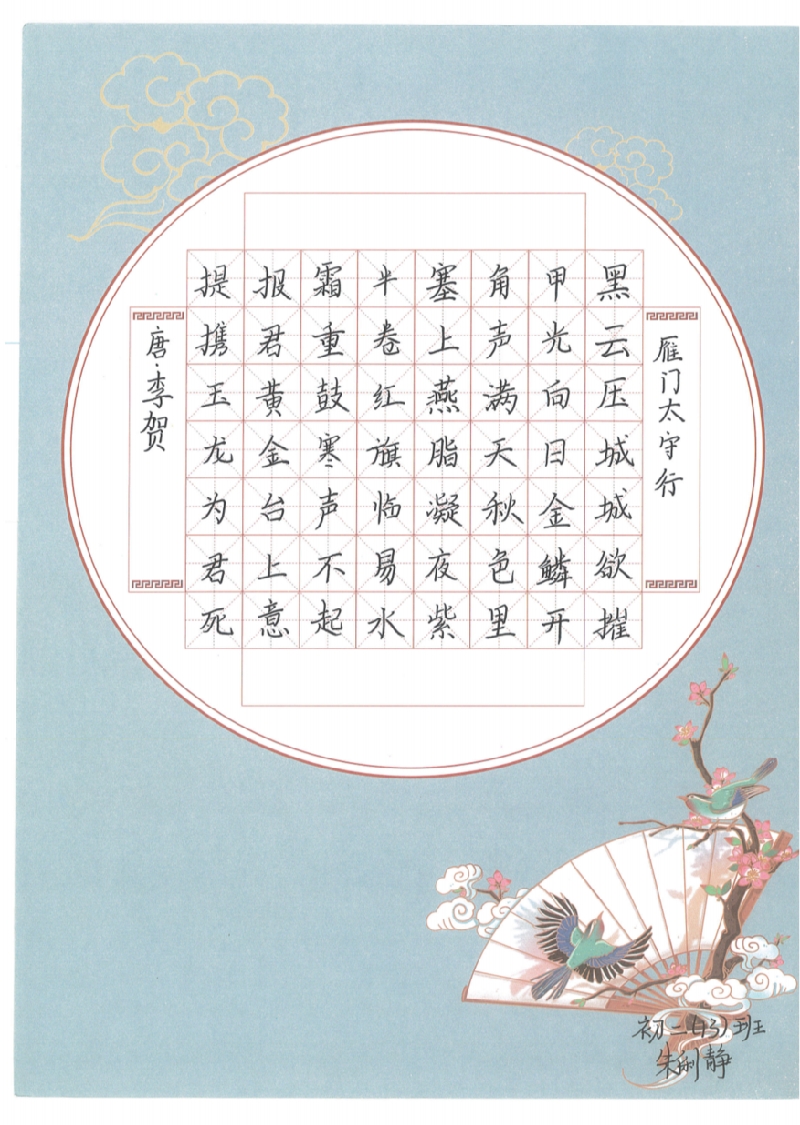 雁门太守行
黑云压城城欲摧
甲光向日金鳞开
角声满天秋色里
塞上燕脂凝夜紫
半卷红旗临易水
霜重鼓寒声不起
报君黄金台上意
提携玉龙为君死
唐·李贺
初二(13)班